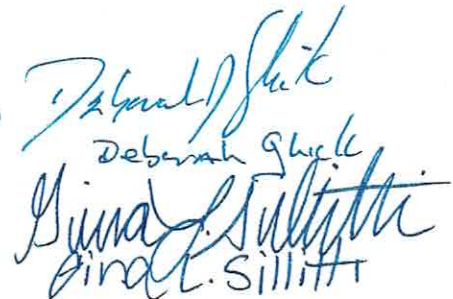 Deborah J Glick
Deborah Glick
Gina L. Sillitti
Gina L. Sillitti